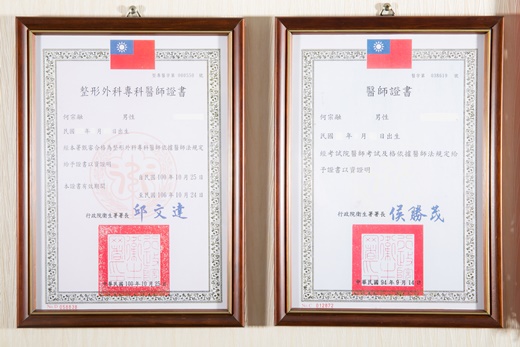 整形外科專科醫師證書
何宗融 男性
民國 年 月 日出生
經本署甄審合格為整形外科專科醫師依據醫師法規定
給予證書以資證明
自民國100年10月25日
本證書有效期間
至民國106年10月24日
行政院衛生署署長 邱文達
中華民國100年10月25日
醫師證書
何宗融 男性
民國 年 月 日出生
經考試院醫師考試及格依據醫師法規定給
予證書以資證明
行政院衛生署署長 侯勝茂
中華民國94年9月14日